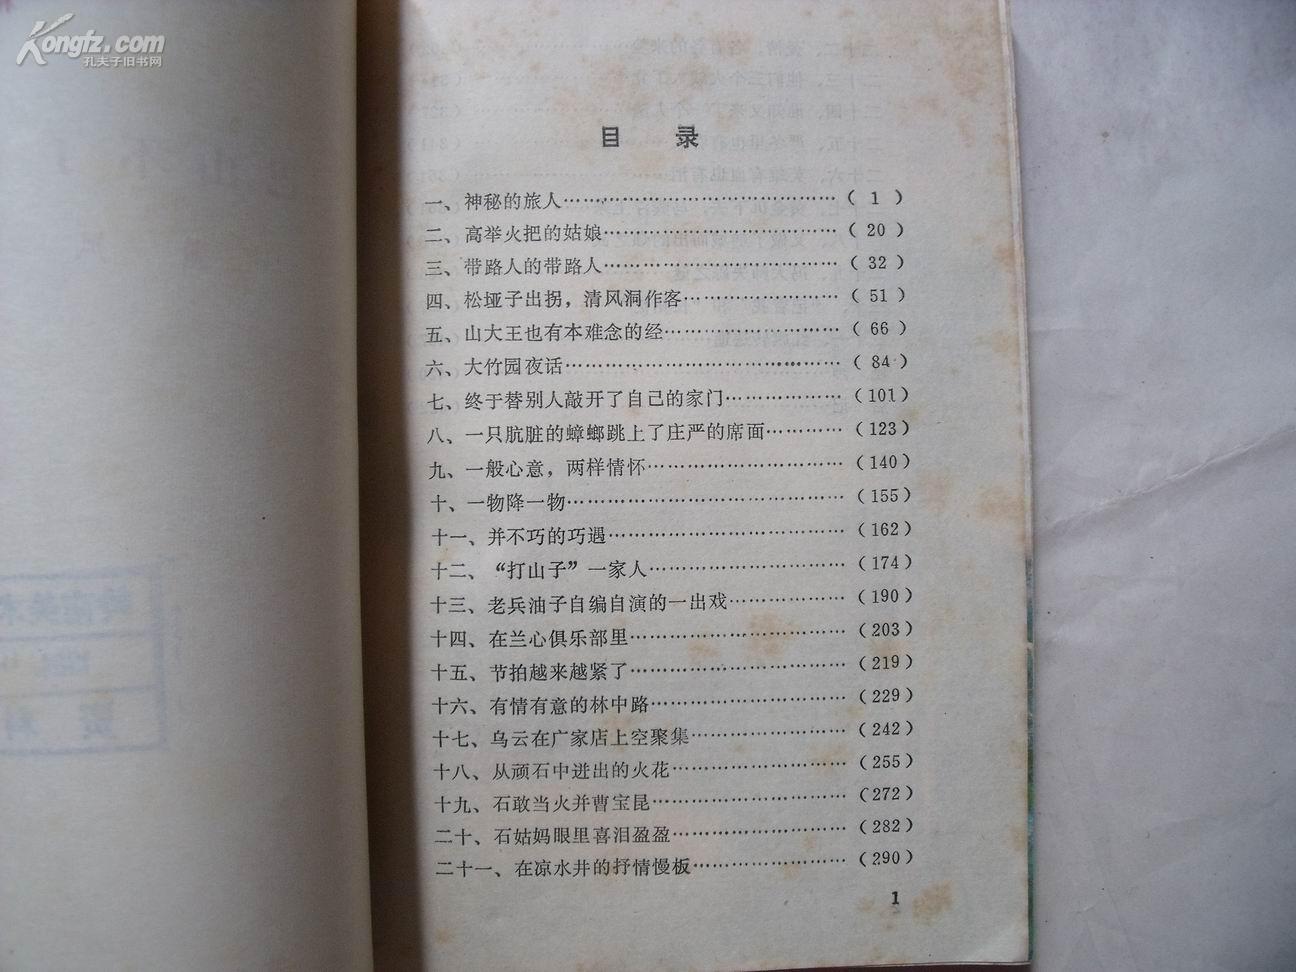 Kongfz.com
孔夫子旧书网
目 录
一、神秘的旅人……………………………………( 1 )
二、高举火把的姑娘………………………………( 20 )
三、带路人的带路人………………………………( 32 )
四、松垭子出拐，清风洞作客……………………( 51 )
五、山大王也有本难念的经………………………( 66 )
六、大竹园夜话……………………………………( 84 )
七、终于替别人敲开了自己的家门………………(101)
八、一只肮脏的蟑螂跳上了庄严的席面…………(123)
九、一般心意，两样情怀…………………………(140)
十、一物降一物……………………………………(155)
十一、并不巧的巧遇………………………………(162)
十二、“打山子”一家人…………………………(174)
十三、老兵油子自编自演的一出戏………………(190)
十四、在兰心俱乐部里……………………………(203)
十五、节拍越来越紧了……………………………(219)
十六、有情有意的林中路…………………………(229)
十七、乌云在广家店上空聚集……………………(242)
十八、从顽石中迸出的火花………………………(255)
十九、石敢当火并曹宝昆…………………………(272)
二十、石姑妈眼里喜泪盈盈………………………(282)
二十一、在凉水井的抒情慢板……………………(290)
1